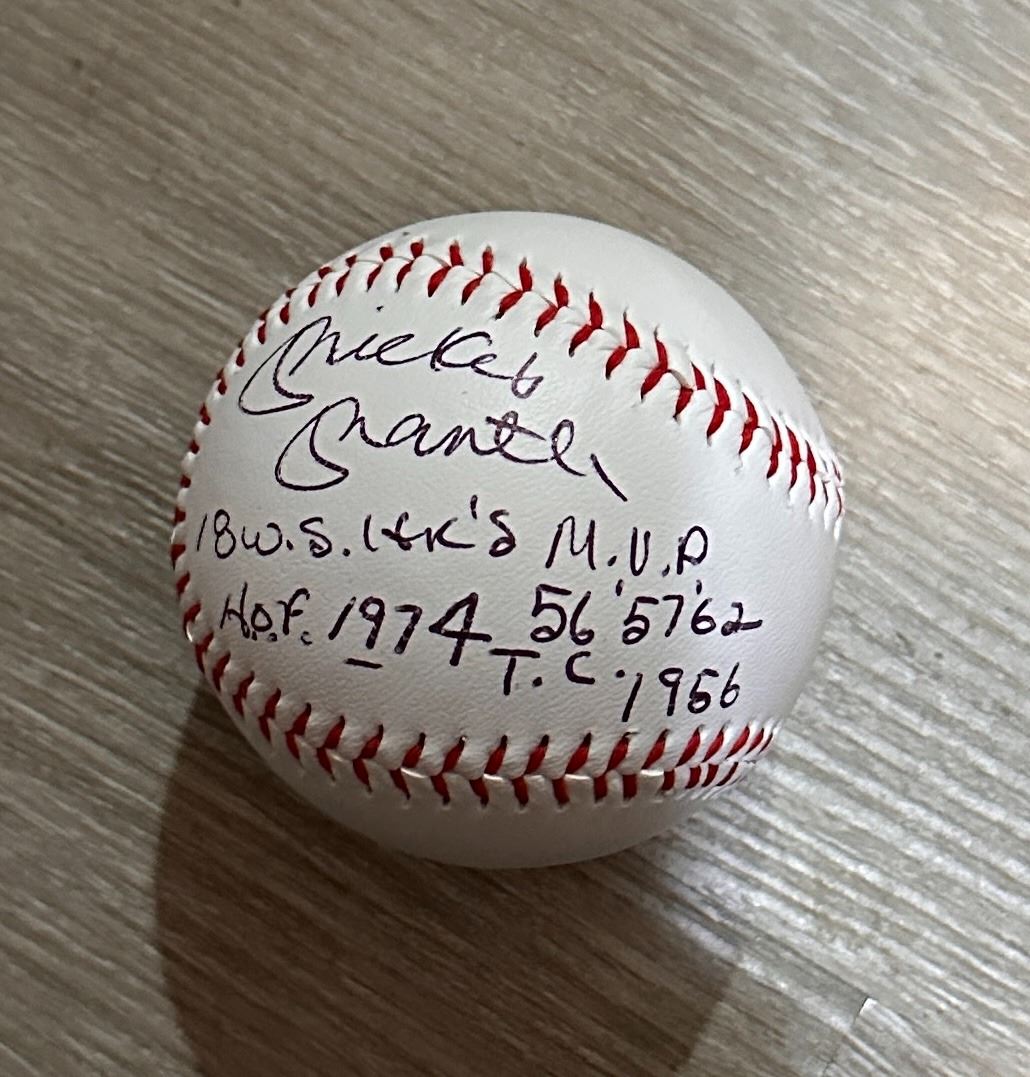 Mickey
Mantle
18 W.S. HR'S M.V.P
H.O.F. 1974 56 '57 '62
T.C. 1956